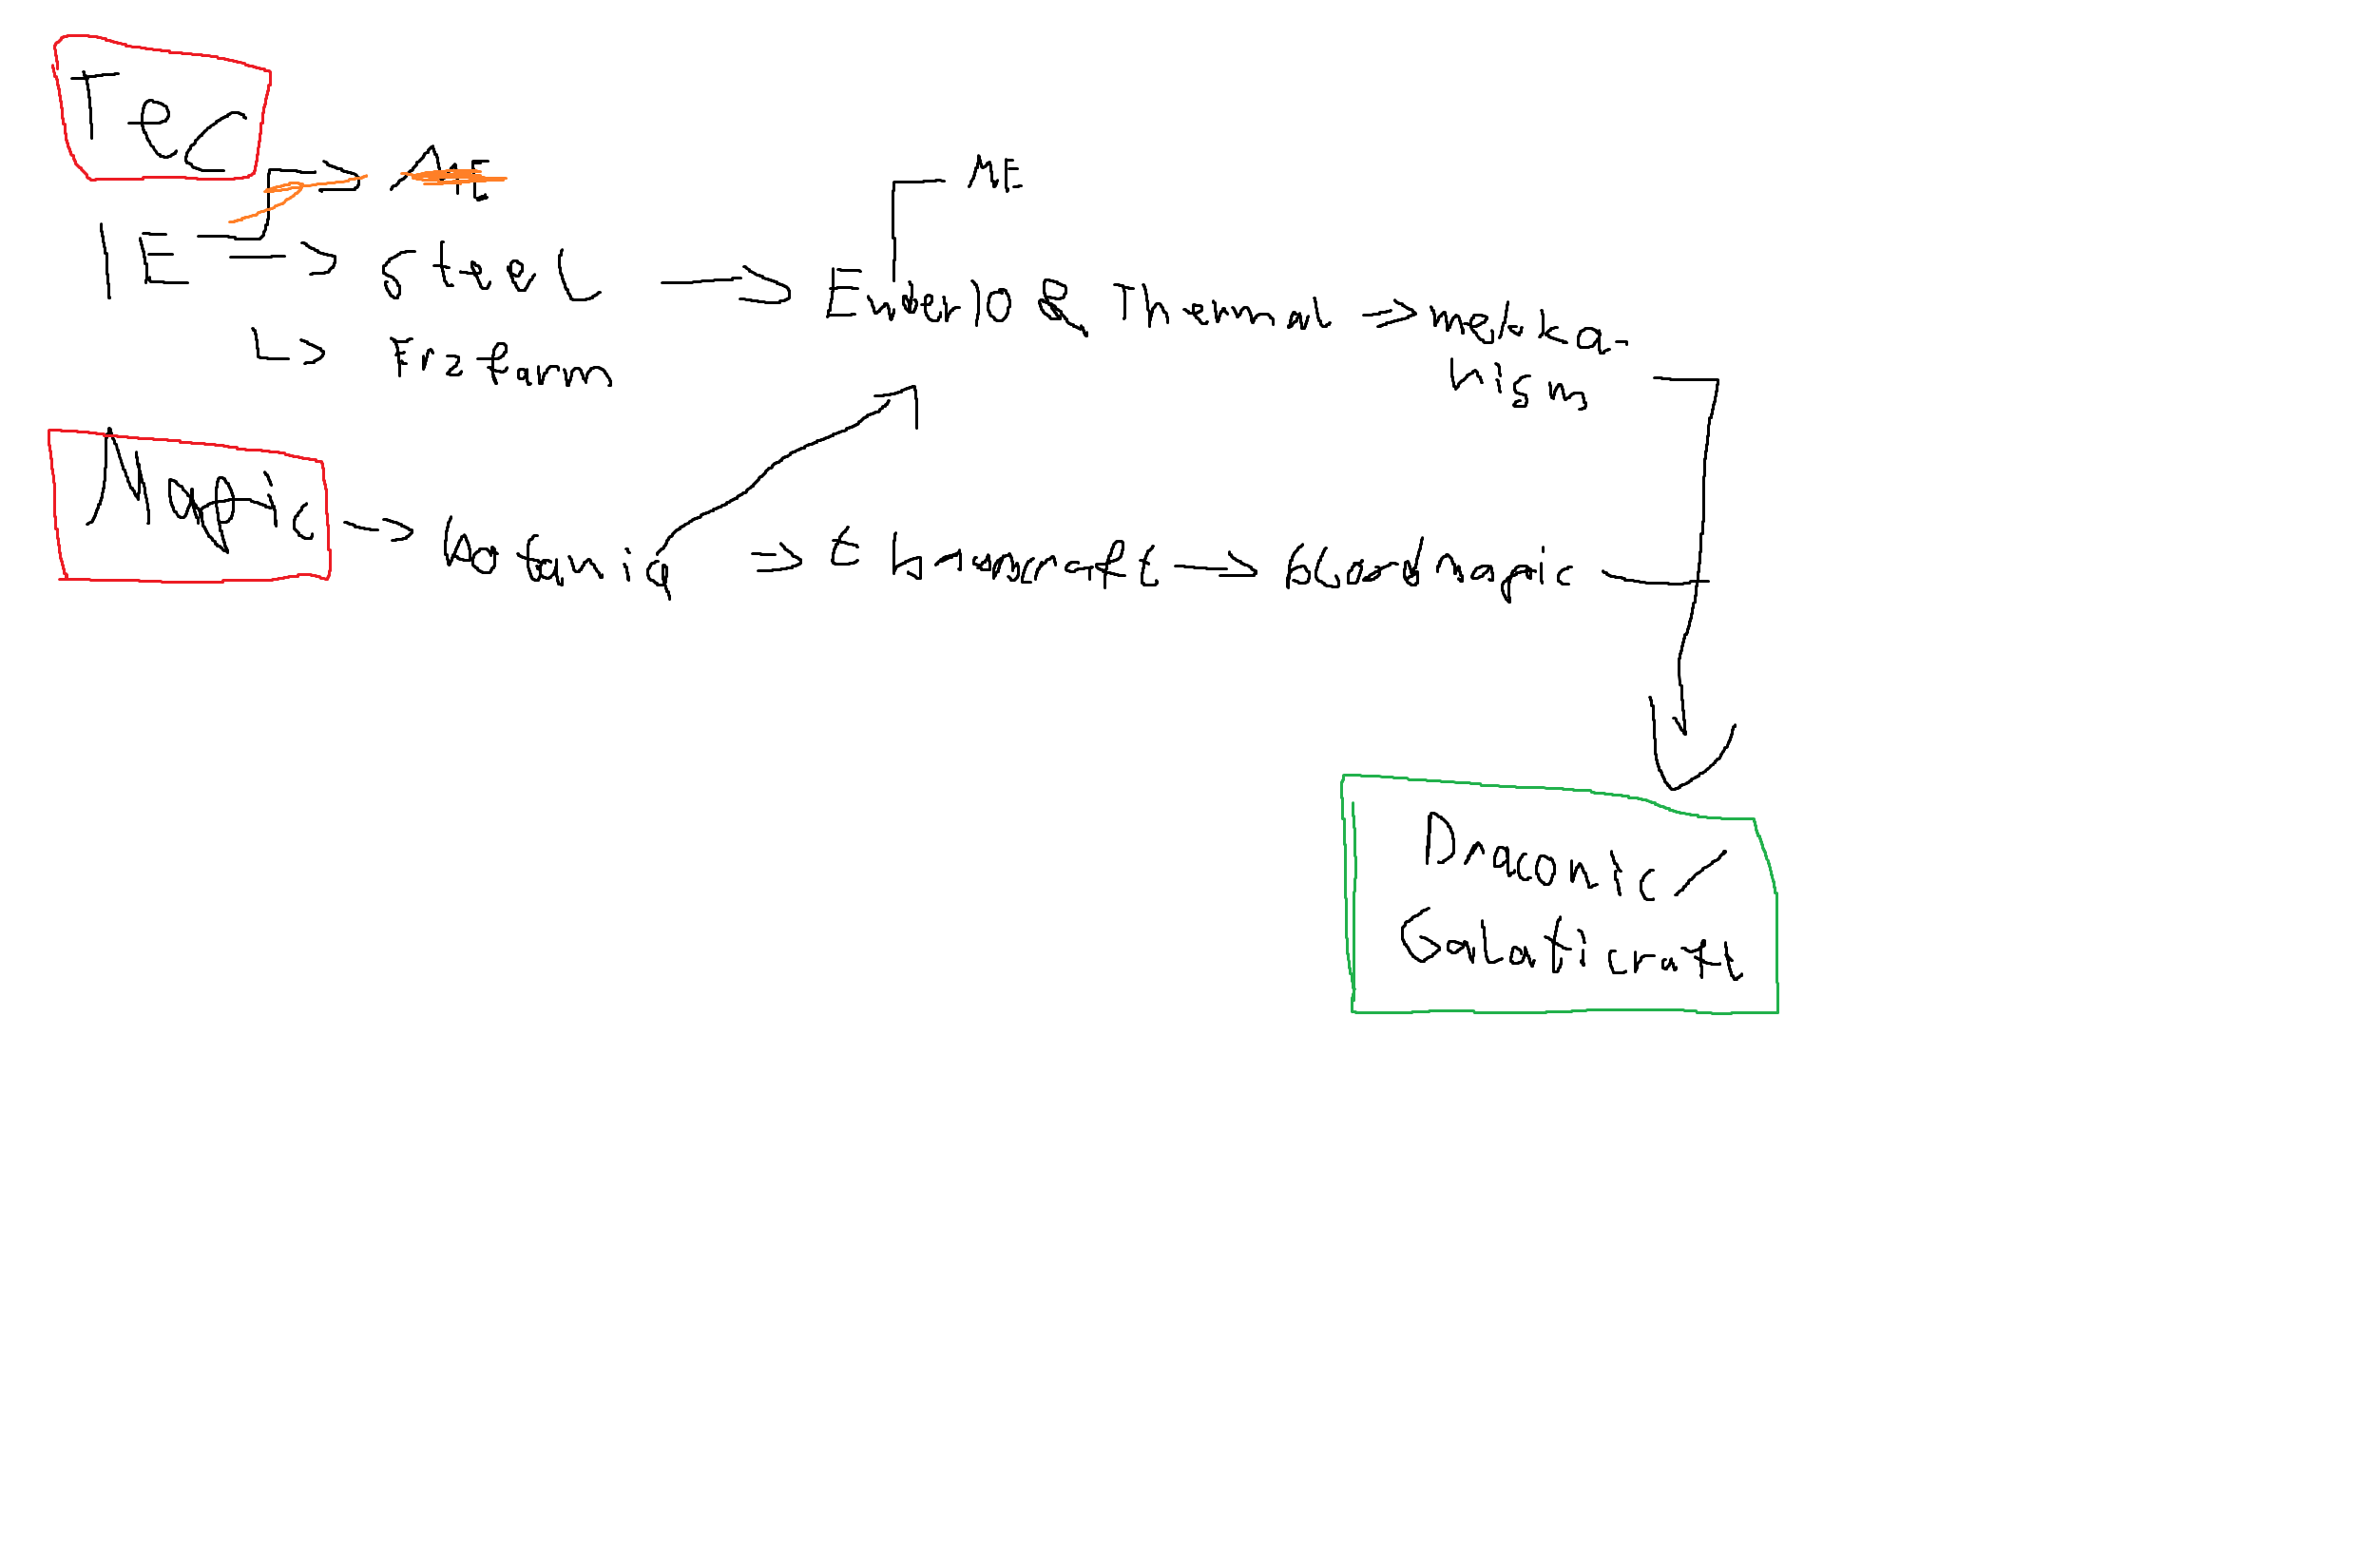 Tec
ME
IE => Steel -> EnderIO & Thermal => mekka-
nism
Erzfarm
Magic -> botania => thaumcraft -> bloodmagic
Draconic/
Galaticraft